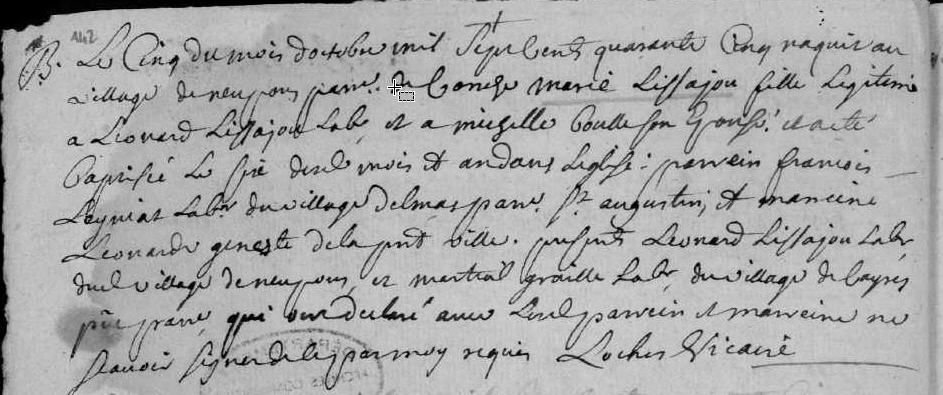 142
B. Le Cinq du mois doctobre mil Sept Cents quarante Cinq naquit au
village de neupous parre. de Coreze marie Lissajou fille Legitime
a Leonard Lissajou Labr. et a micielle son Epouse. et a eté
Baptisée Le sixe dud. mois et an dans Leglise: parrein francois
Leyniat Labr. du village delmas parre. St. augustin, et mareine
Leonarde geneste de la pnt ville. presents Leonard Lissajou Labr
dud village de neupous, et martial graille Labr. du village de
pnte parre, qui ont declaré avec Lesd parrein et marreine ne
scavoir signer de ce par moy requis Vicaire